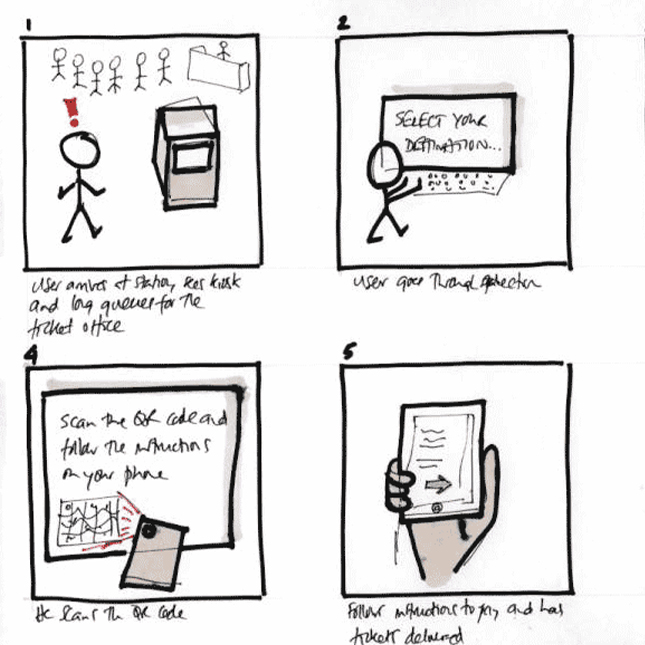 1
!
User arrives at station, sees kiosk
and long queue for the
ticket office
2
SELECT YOUR
DESTINATION...
User goes through selection
4
Scan the QR code and
follow the instructions
on your phone
He scans the QR code
5
Follows instructions to pay and has
tickets delivered